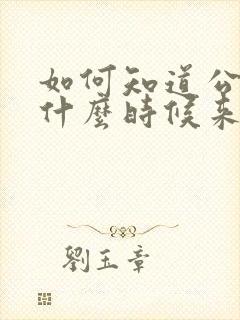 如何知道公
什麼時候來
劉玉章